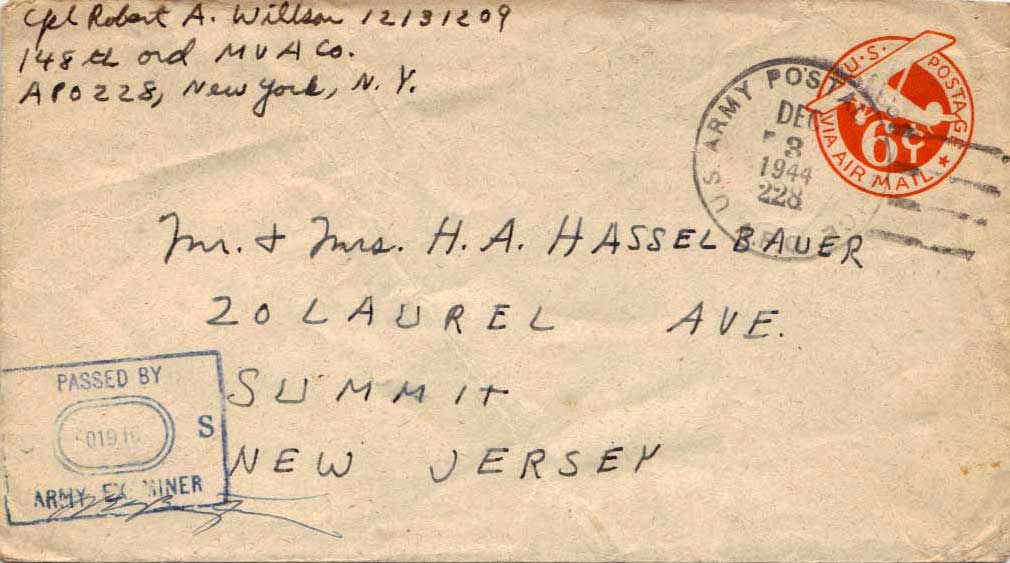 Cpl Robert A. Willson 12131209
148th ord M V A Co.
APO 228, New York, N. Y.
U.S. ARMY POSTAL
DEC
3
1944
228
U.S. POSTAGE
6¢
VIA AIR MAIL
Mr. + Mrs. H. A. HASSELBAUER
20 LAUREL AVE.
SUMMIT
NEW JERSEY
PASSED BY
S
ARMY EXAMINER